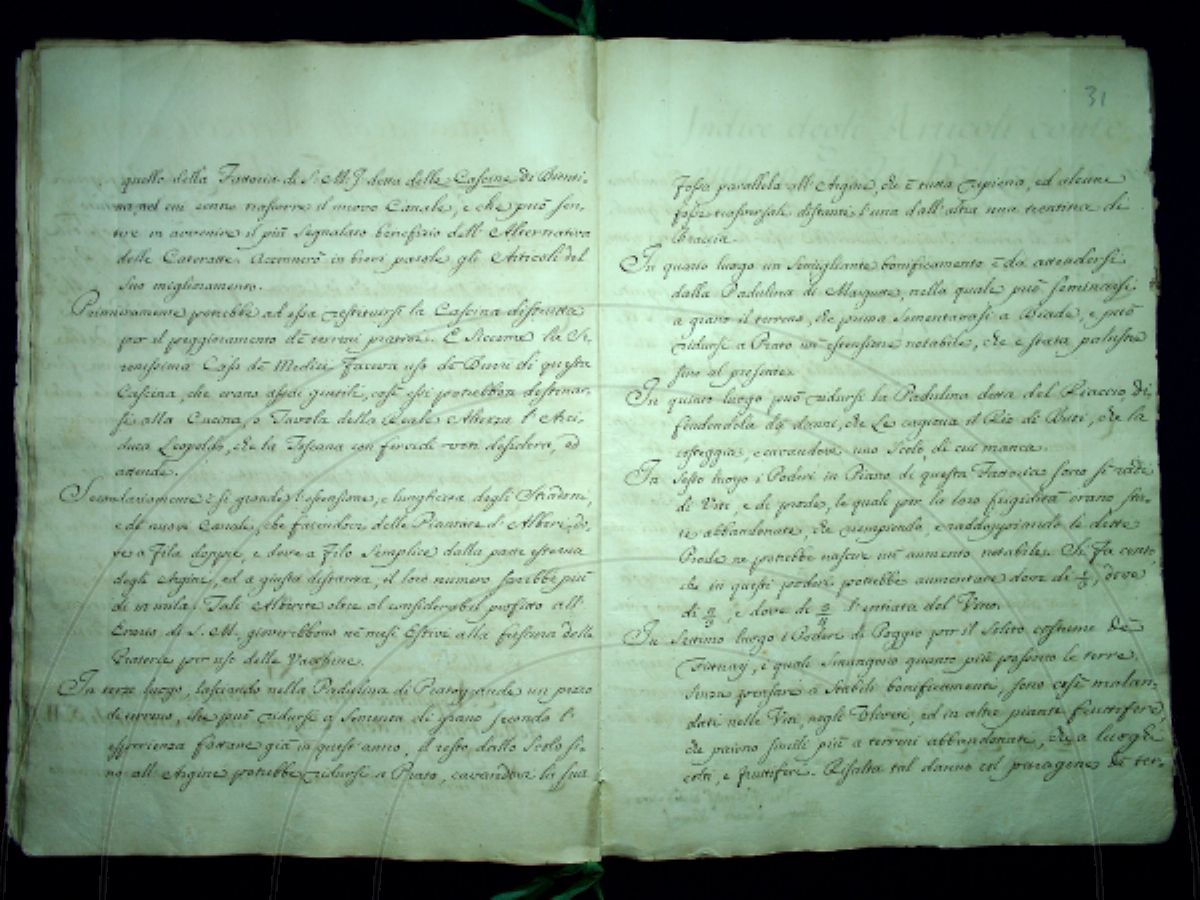 quello della Fattoria di S. M. I. detta delle Cascine di Bienti-
na, nel cui venne trascorre il nuovo Canale, e che può sen-
tire in avvenire il più segnalato benefizio dell'Alternativa
delle Cateratte. Accennerò in brevi parole gli Articoli del
suo miglioramento.
Primieramente potrebbe ad essa restituirsi la Cascina dismessa
per il peggioramento de terreni prativi. E siccome la Se-
renissima Casa de Medici faceva uso de Burri di questa
Cascina, che erano assai gentili, così essi potrebbon destinar-
si alla Cucina, o Tavola della Reale Altezza l'Arci-
duca Leopoldo, che la Toscana con fervidi voti desidera, ed
attende.
Secondariamente è sì grande l'estensione, e lunghezza degli Stradoni,
e de nuovi Canali, che facendovi delle Piantate d'Alberi, do-
ve a Fila doppie, e dove a Filo semplice dalla parte esterna
degli Argini, ed a giusta distanza, il loro numero sarebbe più
di mila. Tali Alberete oltre al considerabil profitto all'
Erario di S. M. gioverebbono ne mesi Estivi alla frescura delle
Praterie per uso delle Vacchine.
In terzo luogo, lasciando nella Padulina di Pratogrande un pezzo
di terreno, che può ridursi a Sementa di grano secondo l'
esperienza fattane già in quest'anno, il resto dallo Scolo si-
no all'Argine potrebbe ridursi a Prato, cavandovi la sua
31
fossa parallela all'Argine, che è tutta ripiena, ed alcune
fosse trasversali distanti l'una dall'altra una trentina di
braccia.
In quarto luogo un somigliante bonificamento è da attendersi
dalla Padulina di Margutte, nella quale può seminarsi
a grano il terreno, che prima sementavasi a Biade, e può
ridursi a Prato un'estensione notabile, che è stata palustre
fino al presente.
In quinto luogo può ridursi la Padulina detta del Piaccio, di-
fendendola da danni, che le cagiona il Rio di Buti, che la
costeggia, e cavandovi uno Scolo, di cui manca.
In sesto luogo i Poderi in Piano di questa Fattoria sono sì radi
di Viti, e di prode, le quali per la loro frigidità erano sta-
te abbandonate, che riempiendo, e raddoppiando le dette
Prode ne potrebbe nascere un aumento notabile. Si fa conto,
che in questi poderi potrebbe aumentare dove di , dove
di , e dove di l'entrata del Vino.
In Settimo luogo i Poderi di Poggio per il solito costume de
, i quali smungono quanto più possono le terre,
senza pensare a stabili bonificamenti, sono così malan-
dati nelle Viti, negli Uliveti, ed in altre piante fruttifere,
che paiono simili più a terreni abbandonati, che a luoghi
colti, e fruttiferi. Risalta tal danno col paragone de ter-